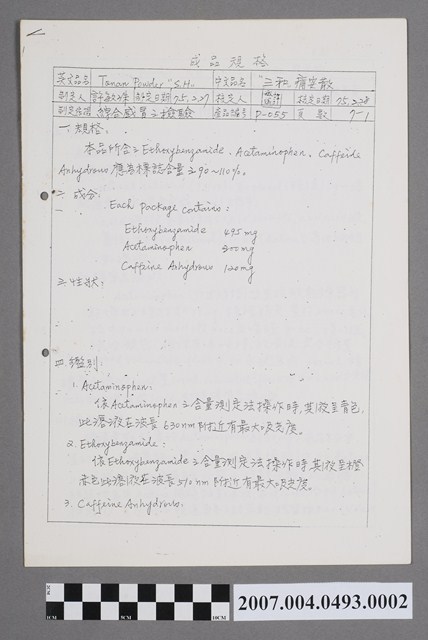 成品規格
英文品名 Tsuan Powder "S.H." 中文品名 "三和"痛安散
制定人 制定日期 75.2.27 核定人 核定日期 75.2.28
制定依據 綜合感冒之檢驗 產品編號 P-055 頁數 7-1
一.規格:
本品所含之Ethoxybenzamide、Acetaminophen、Caffeine
Anhydrous應為標誌含量之90~110%。
二.成分:
Each package contains:
Ethoxybenzamide 495mg
Acetaminophen 300mg
Caffeine Anhydrous 120mg
三.性狀:
四.鑑別:
1. Acetaminophen:
依Acetaminophen之含量測定法操作時,其液呈青色,
此溶液在波長630nm附近有最大吸光度。
2. Ethoxybenzamide:
依Ethoxybenzamide之含量測定法操作時其液呈橙
赤色此溶液在波長510nm附近有最大吸光度。
3. Caffeine Anhydrous:
2007.004.0493.0002